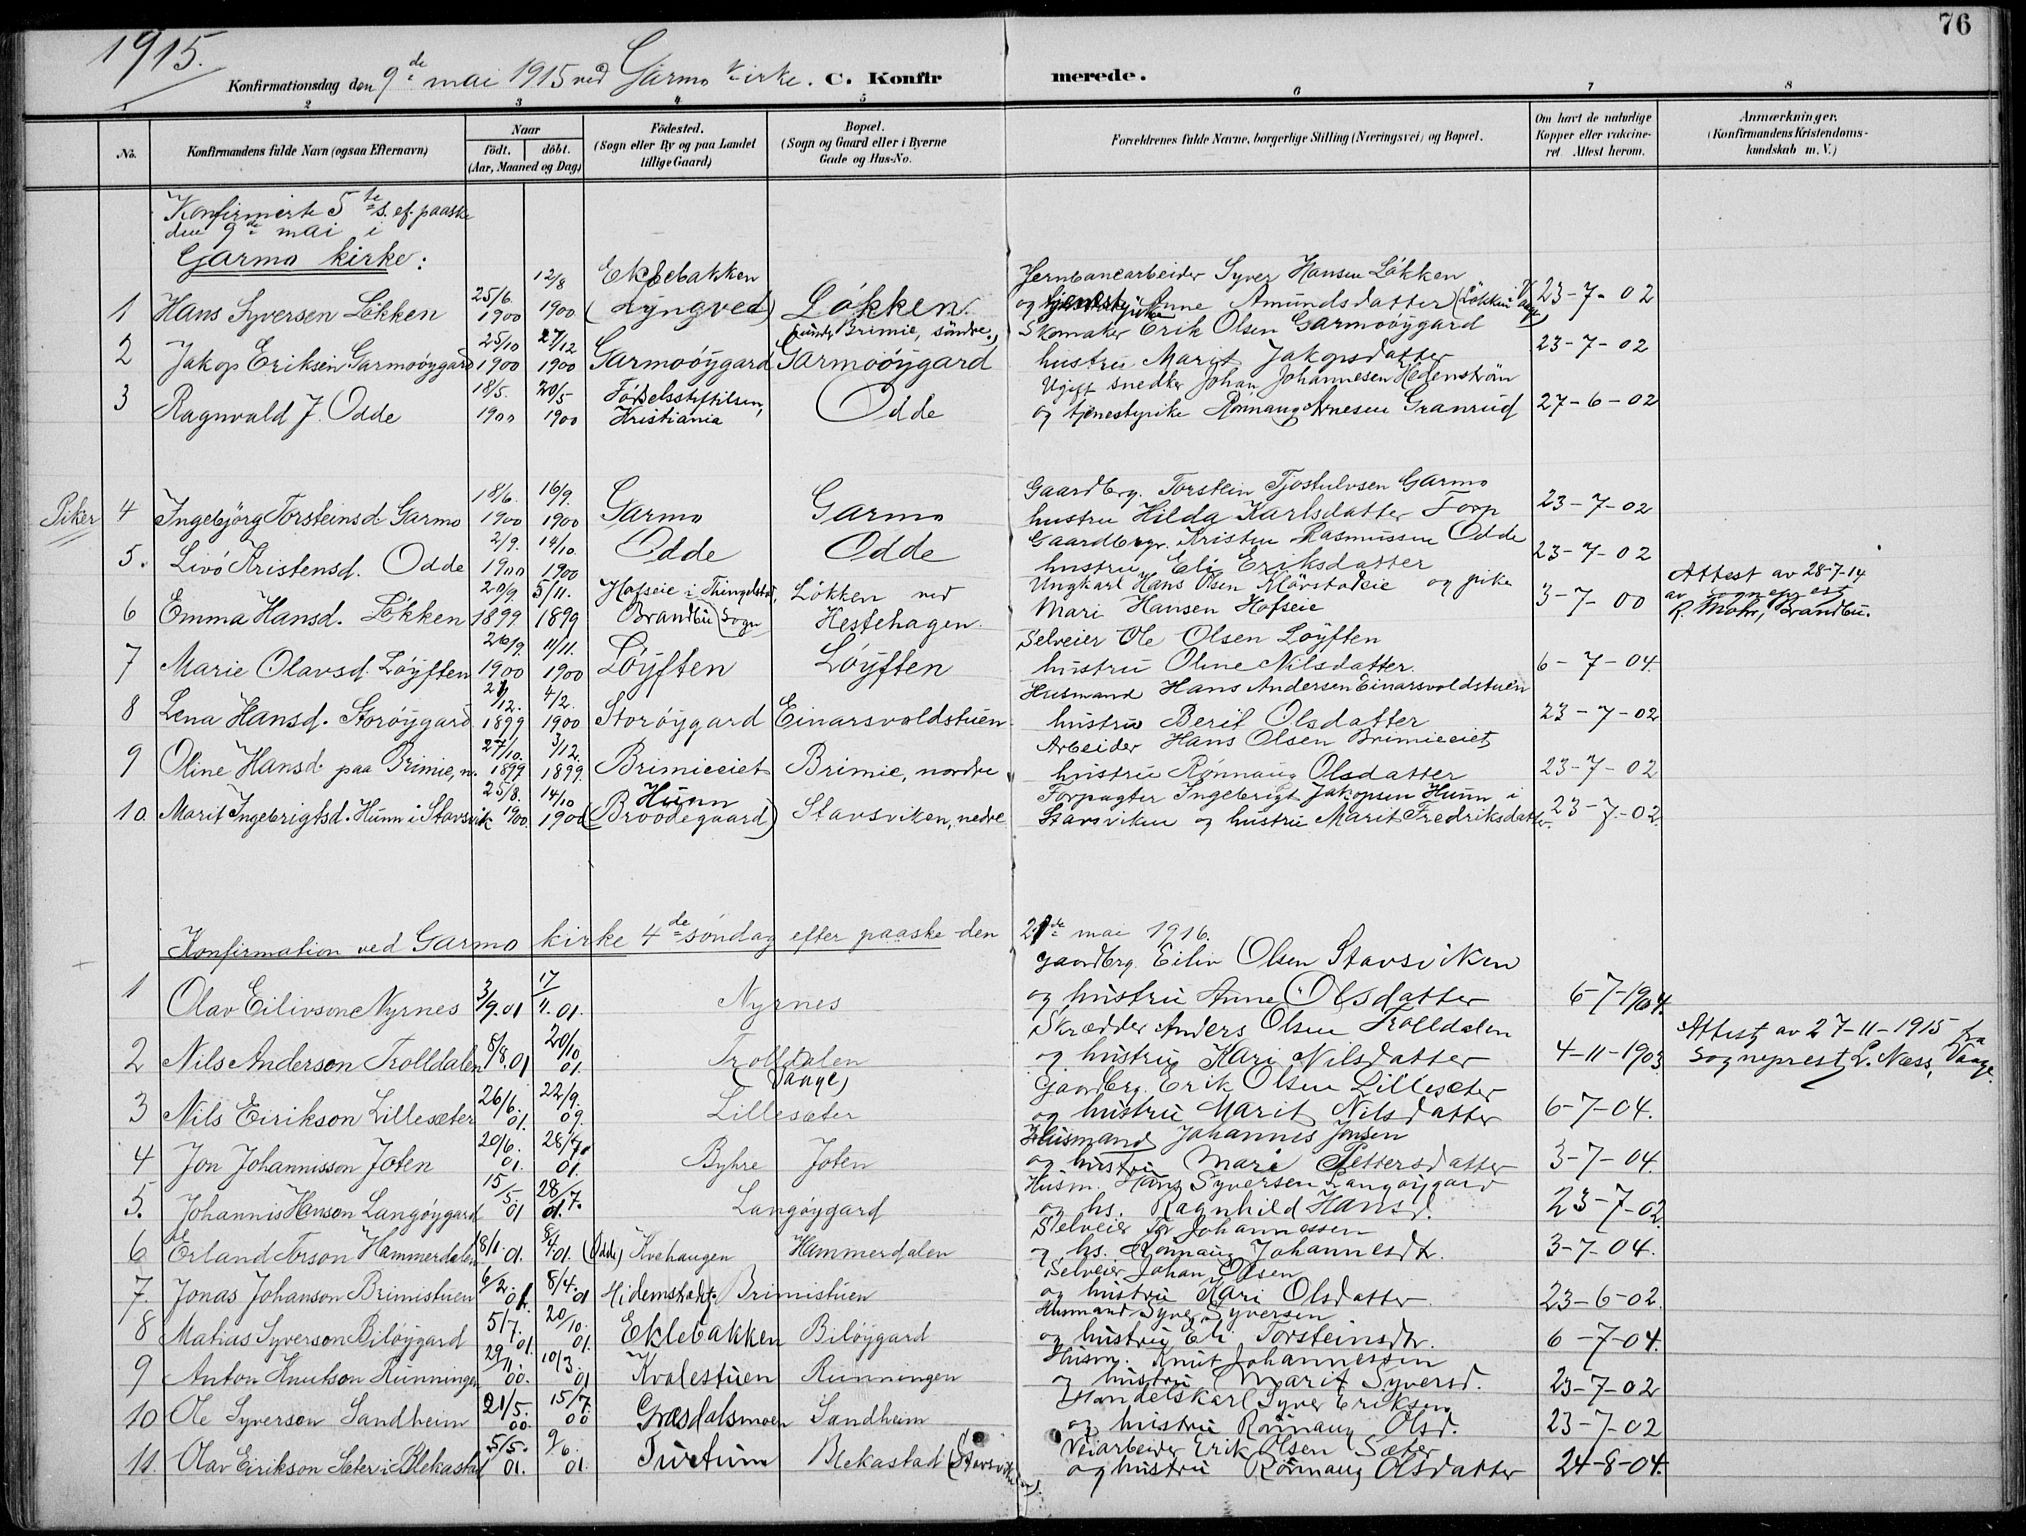 76
1915.
Konfirmationsdag den 9de mai 1915 ved Garmo kirke. C. Konfirmerede.
2 3 4 5 6 7 8
No. Konfirmandens fulde Navn (ogsaa Efternavn) Naar födt. döbt. (Aar, Maaned og Dag) Födested. (Sogn eller By og paa Landet tillige Gaard) Bopæl. (Sogn og Gaard eller i Byerne Gade og Hus-No. Forældrenes fulde Navne, borgerlige Stilling (Næringsvei) og Bopæl. Om havt de naturlige Kopper eller vakcineret. Attest herom. Anmærkninger. (Konfirmandens Kristendomskundskab m. V.)
Konfirmerte 5te s. ef. paaske
den 9de mai i
Garmo kirke:
1 Hans Syversen Løkken 25/6 1900 12/8 1900 Eklebakken (Lyngved) Løkken (under Brimie, søndre.) Jernbanearbeider Syver Hansen Løkken
og Anne Amundsdatter (Løkken 23-7-02
2 Jakop Eriksen Garmoöygard 25/10 1900 27/12 1900 Garmoöygard Garmoöygard Skomaker Erik Olsen Garmoöygard
hustru Marit Jakopsdatter 23-7-02
3 Ragnvald J. Odde 18/5. 1900 20/5 1900 Födselsstiftelsen, Kristiania Odde Ugift snedker Johan Johannesen Hedenström
og tjenestepike Rönnaug Arnesen Granrud 27-6-02
Piker 4 Ingebjörg Torsteinsd Garmo 18/6. 1900 16/9. 1900 Garmo Garmo Gaardbrg. Torstein Tjostulvsen Garmo
hustru Hilda Karlsdatter Forp 23-7-02
5. Livö Kristensd. Odde 2/9. 1900 14/10. 1900 Odde Odde Gaardbrgr. Kristen Rasmussen Odde
hustru Eli Eriksdatter 23-7-02
6 Emma Hansd. Løkken 20/9 1899 5/11. 1899 Hofseie i Thingelstad, Brandbu (Sogn Løkken ved Hestehagen. Ungkarl Hans Olsen Klövstadeie og pike
Mari Hansen Hofseie 3-7-00 Attest av 28-7-14
av sogneprest
R. Mohr, Brandbu.
7 Marie Olavsd. Löyften 26/9. 1900 11/11. 1900 Löyften Löyften Selveier Ole Olsen Löyften
hustru Oline Nilsdatter. 6-7-04.
8 Lena Hansd. Storöygard 12. 1899 4/2. 1900 Storöygard Einarsvoldstuen. Husmand Hans Andersen Einarsvoldstuen
hustru Berit Olsdatter 23-7-02
9 Oline Hansd. paa Brimie, n. 27/10. 1899 3/12. 1899. Brimieeiet Brimie, nordre Arbeider Hans Olsen Brimieeiet
hustru Rønnaug Olsdatter 23-7-02
10. Marit Ingebrigtsd. Hunn i Stavsvik 25/8. 1900. 14/10 1900 Hunn (Broodegaard) Stavsviken, nedre Forpagter Ingebrigt Jakopsen Hunn i
Stavsviken og hustru Marit Fredriksdatter. 23-7-02.
Konfirmation ved Garmo kirke 4de söndag efter paaske den 21de mai 1916.
1 Olav Eilivson Nyrnes 3/9. 01 17/11. 01. Nyrnes Gaardbrg. Eiliv Olsen Stavsviken
og hustru Anne Olsdatter 6-7-1904.
2 Nils Anderson Trolldalen 8/8. 01 20/10. 01. Trolldalen Vaage) Skrædder Anders Olsen Trolldalen
og hustru Kari Nilsdatter 4-11-1903 Attest av 27-11-1915 fra
Sogneprest L. Næss, Vaage.
3 Nils Eirikson Lillesæter 26/6. 01. 22/9. 09. Lillesæter Gaardbrg. Erik Olsen Lillesæter
og hustru Marit Nilsdatter 6-7-04.
4 Jon Johannisson Joten 20/6. 01. 28/7. 01. Byhre Joten Husmand Johannis Jonsen
og hustru Mari Pettersdatter 3-7-04
5. Johannis Hanson Langöygard 15/5. 01 28/7. 01. Langöygard Husm. Hans Syversen Langöygard
og hs. Ragnhild Hansd. 23-7-02.
6 Erland Torson Hammerdalen 18/1. 01. 8/4. 01. (Odde) Kvehaugen Hammerdalen Selveier Tor Johannessen
og hs. Rønnaug Johannesdtr. 3-7-04.
7. Jonas Johanson Brimistuen 6/2. 01. 8/4. 01 Brimistuen Selveier Johan Olsen
og hustru Kari Olsdatter. 23-6-02.
8 Matias Syverson Bilöygard 5/7. 01. 20/10. 01. Eklebakken Bilöygard Husmand Syver Syversen
og hustru Eli Torsteinsdtr. 6-7-04.
9 Anton Knutson Runningen 29/11. 00. 10/3. 01 Kvalestuen Runningen Husm. Knut Johannessen
og hustru Marit Syversd. 23-7-02
10 Ole Syverson Sandheim 21/5. 00. 15/7. 00 Græsdalsmoen Sandheim Handelskarl Syver Eriksen
og hustru Rønnaug Olsd. 23-7-02
11. Olav Eirikson Sæter i Blekastad 5/5. 01. 9/6. 01. Turtum Blekastad (Stavsviken) Veiarbeider Erik Olsen Sæter
og hustru Rønnaug Olsdatter 24-8-04.